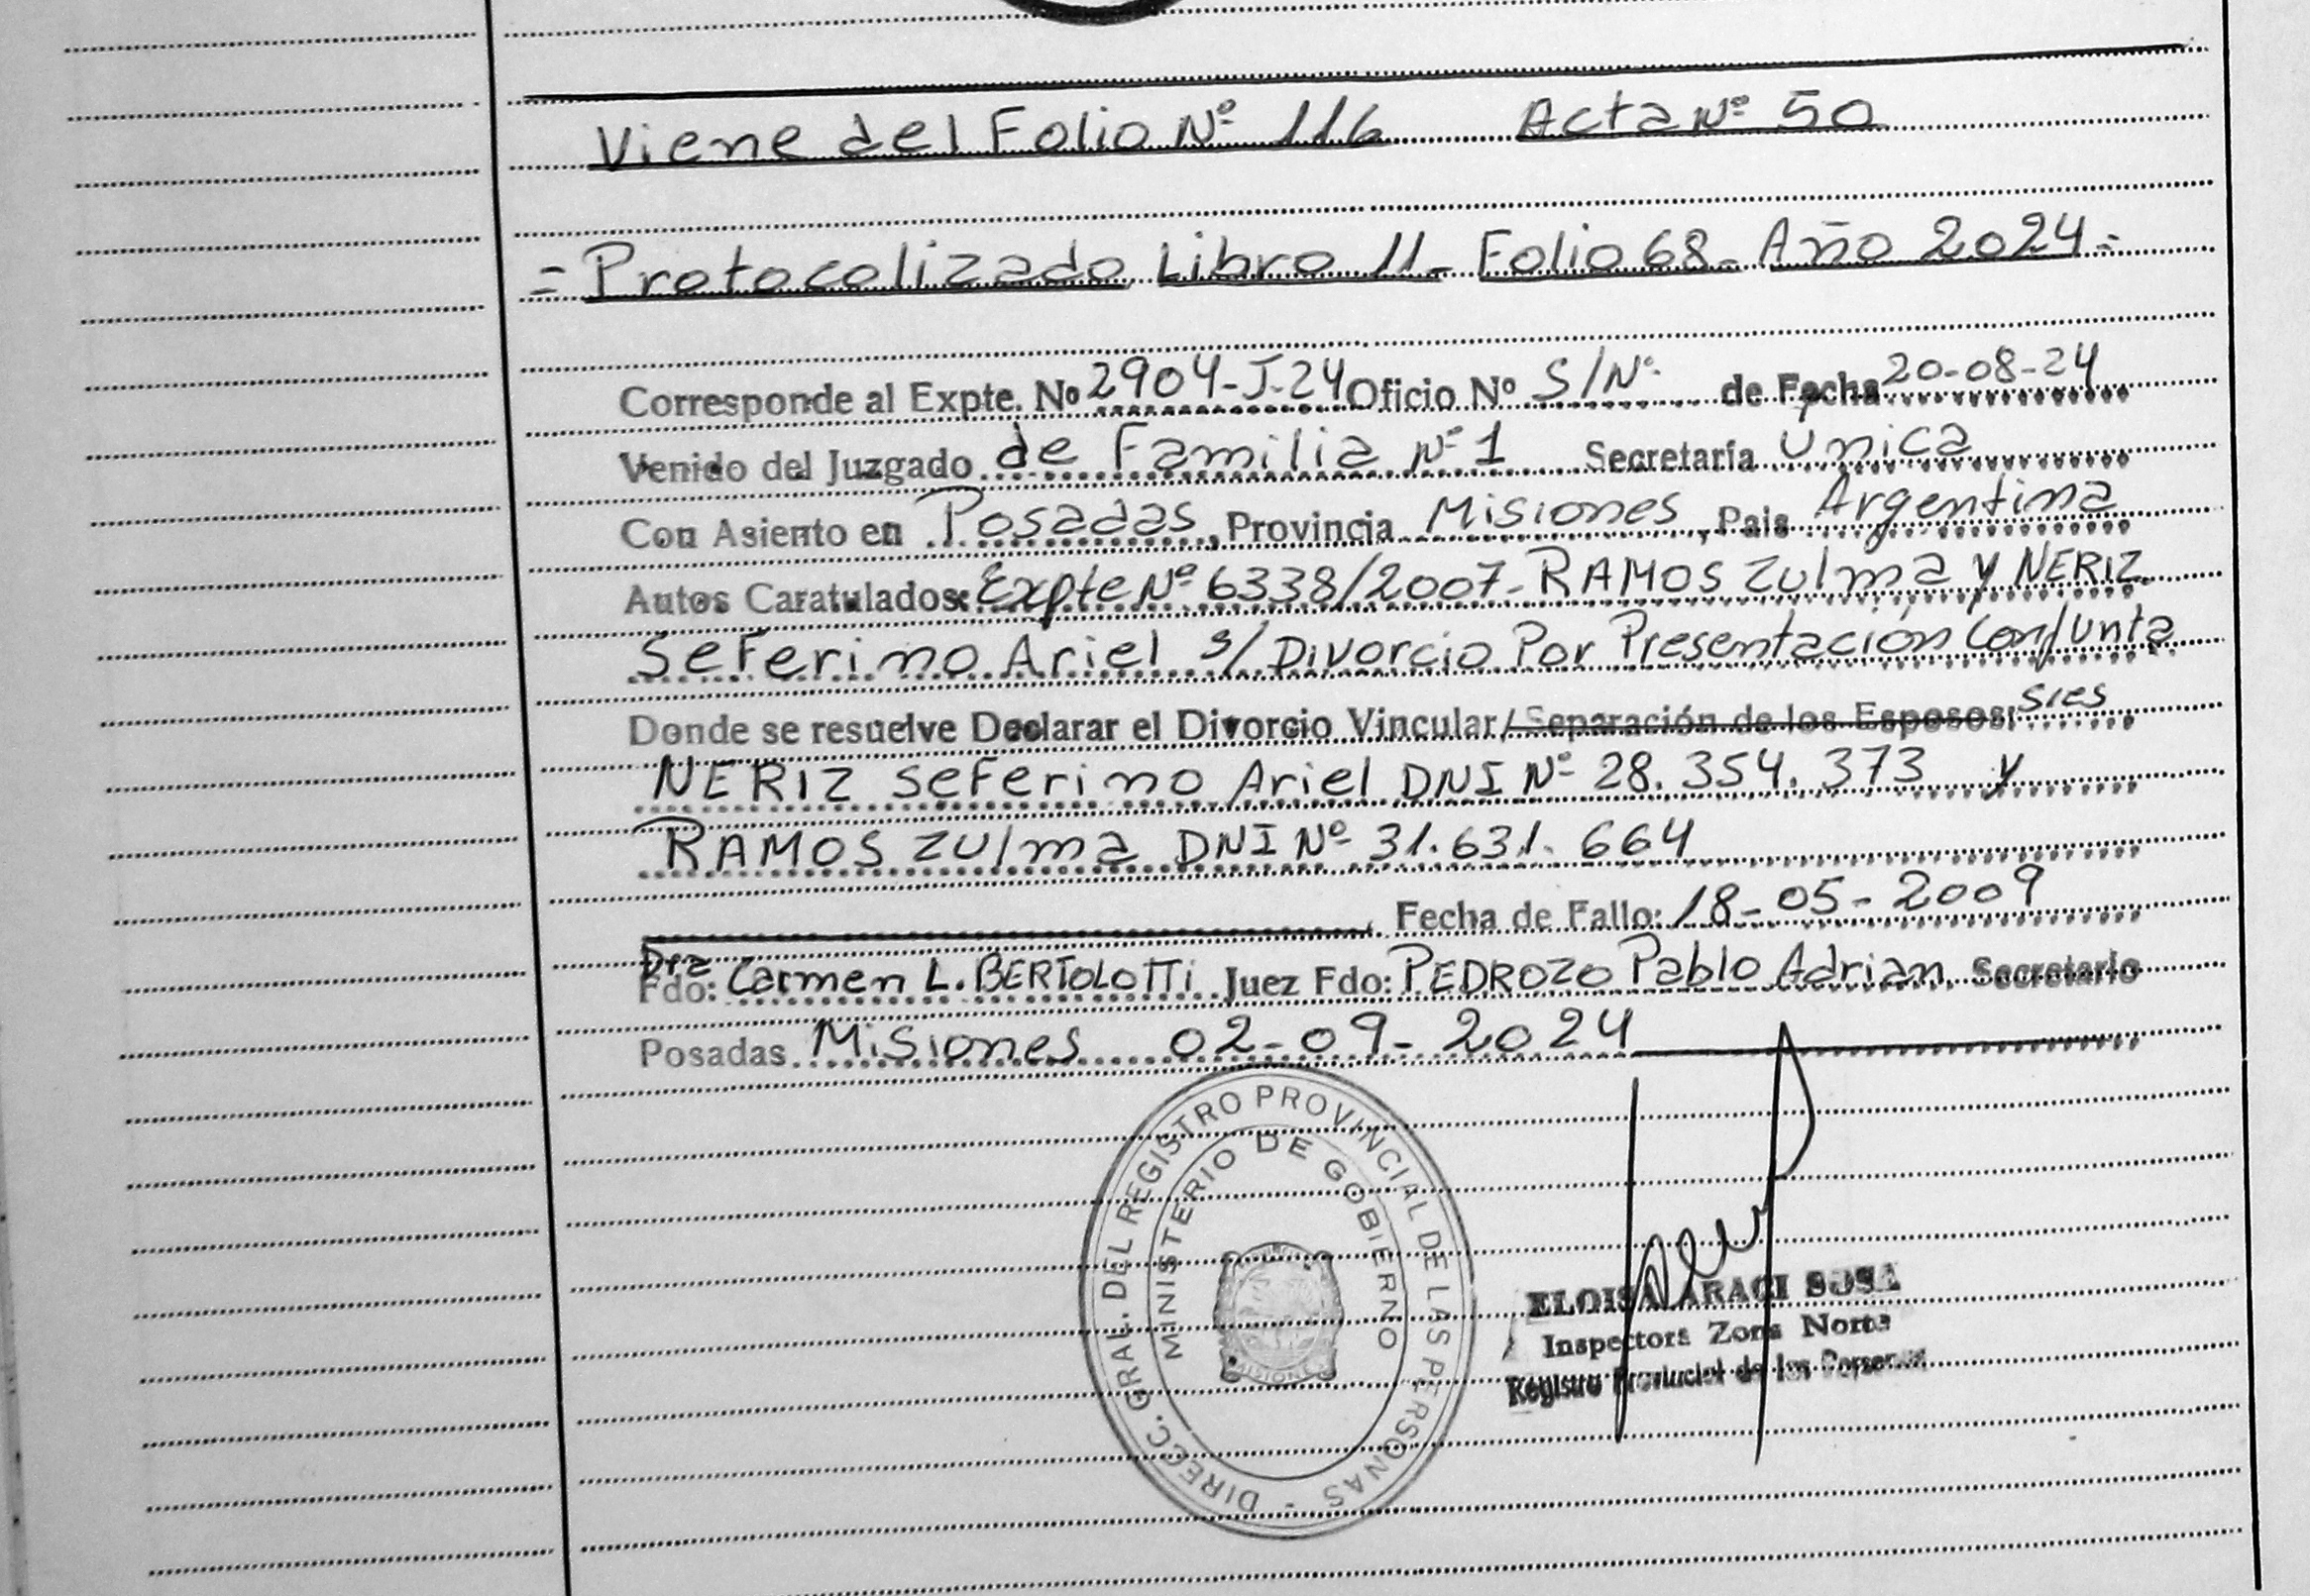 Viene del Folio Nº 116 Acta Nº 50
= Protocolizado Libro 11- Folio 68- Año 2024=
Corresponde al Expte. Nº 2904-J-24 Oficio Nº S/Nº de Fecha 20-08-24
Venido del Juzgado de Familia Nº 1 Secretaría unica
Con Asiento en Posadas, Provincia Misiones, Pais Argentina
Autos Caratulados: Expte Nº 6338/2007- RAMOS Zulma y NERIZ
Seferino Ariel s/ Divorcio Por Presentación Conjunta
Donde se resuelve Declarar el Divorcio Vincular/ Separación de los Esposos: sres
NERIZ Seferino Ariel DNI Nº 28.354.373 y
RAMOS Zulma DNI Nº 31.631.664
Fecha de Fallo: 18-05-2009
Dra
Fdo: Carmen L. BERTOLOTTI Juez Fdo: PEDROZO Pablo Adrian Secretario
Posadas Misiones 02-09-2024
DIRECC. GRAL. DEL REGISTRO PROVINCIAL DE LAS PERSONAS -
MINISTERIO DE GOBIERNO
MISIONES
ELOISA ARACI SOSA
Inspectora Zona Norte
Registro Provincial de las Personas